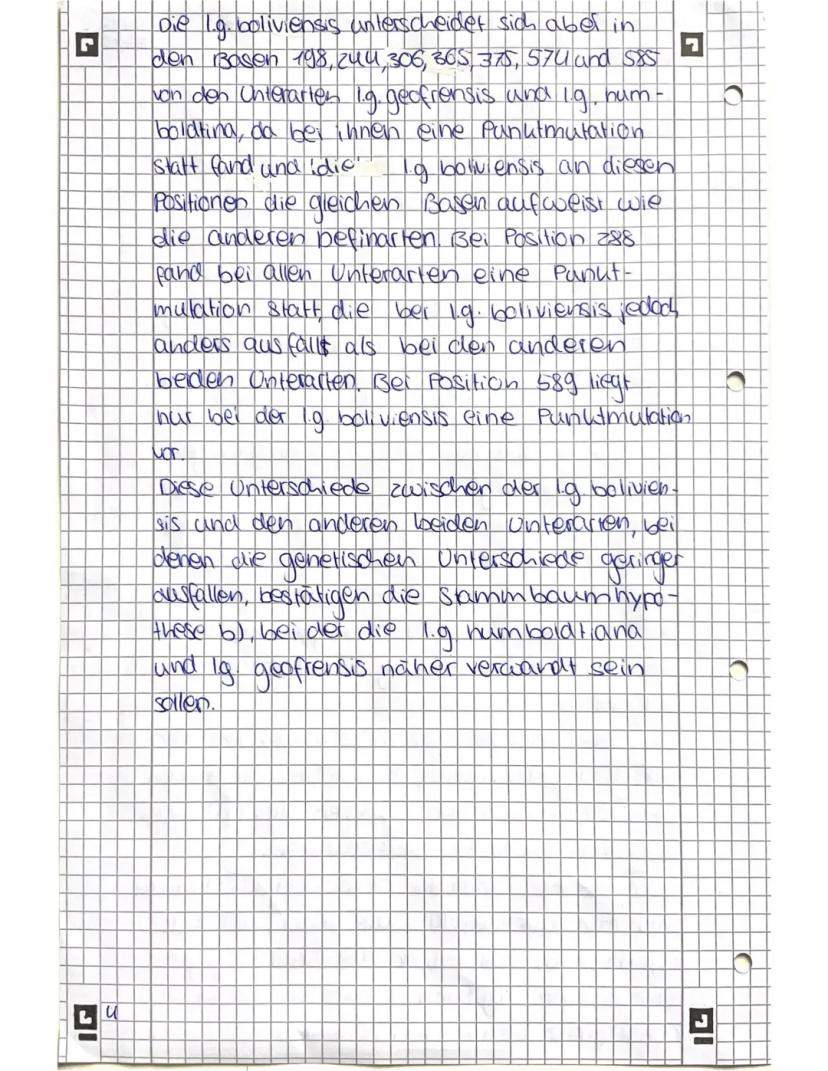 Die I.g. boliviensis unterscheidet sich aber in
den Basen 198, 244, 306, 365, 375, 574 und 585
von den Unterarten I.g. geofrensis und I.g. hum-
boldtina, da bei ihnen eine Punktmutation
statt fand und die I.g boliviensis an diesen
Positionen die gleichen Basen aufweist wie
die anderen Delfinarten. Bei Position 288
fand bei allen Unterarten eine Punkt-
mutation statt, die bei I.g. boliviensis jedoch
anders ausfällt als bei den anderen
beiden Unterarten. Bei Position 589 liegt
nur bei der I.g. boliviensis eine Punktmutation
vor.
Diese Unterschiede zwischen der I.g bolivien-
sis und den anderen beiden Unterarten, bei
denen die genetischen Unterschiede geringer
ausfallen, bestätigen die Stammbaumhypo-
these b), bei der die I.g humboldtiana
und Ig. geofrensis näher verwandt sein
sollen.
4